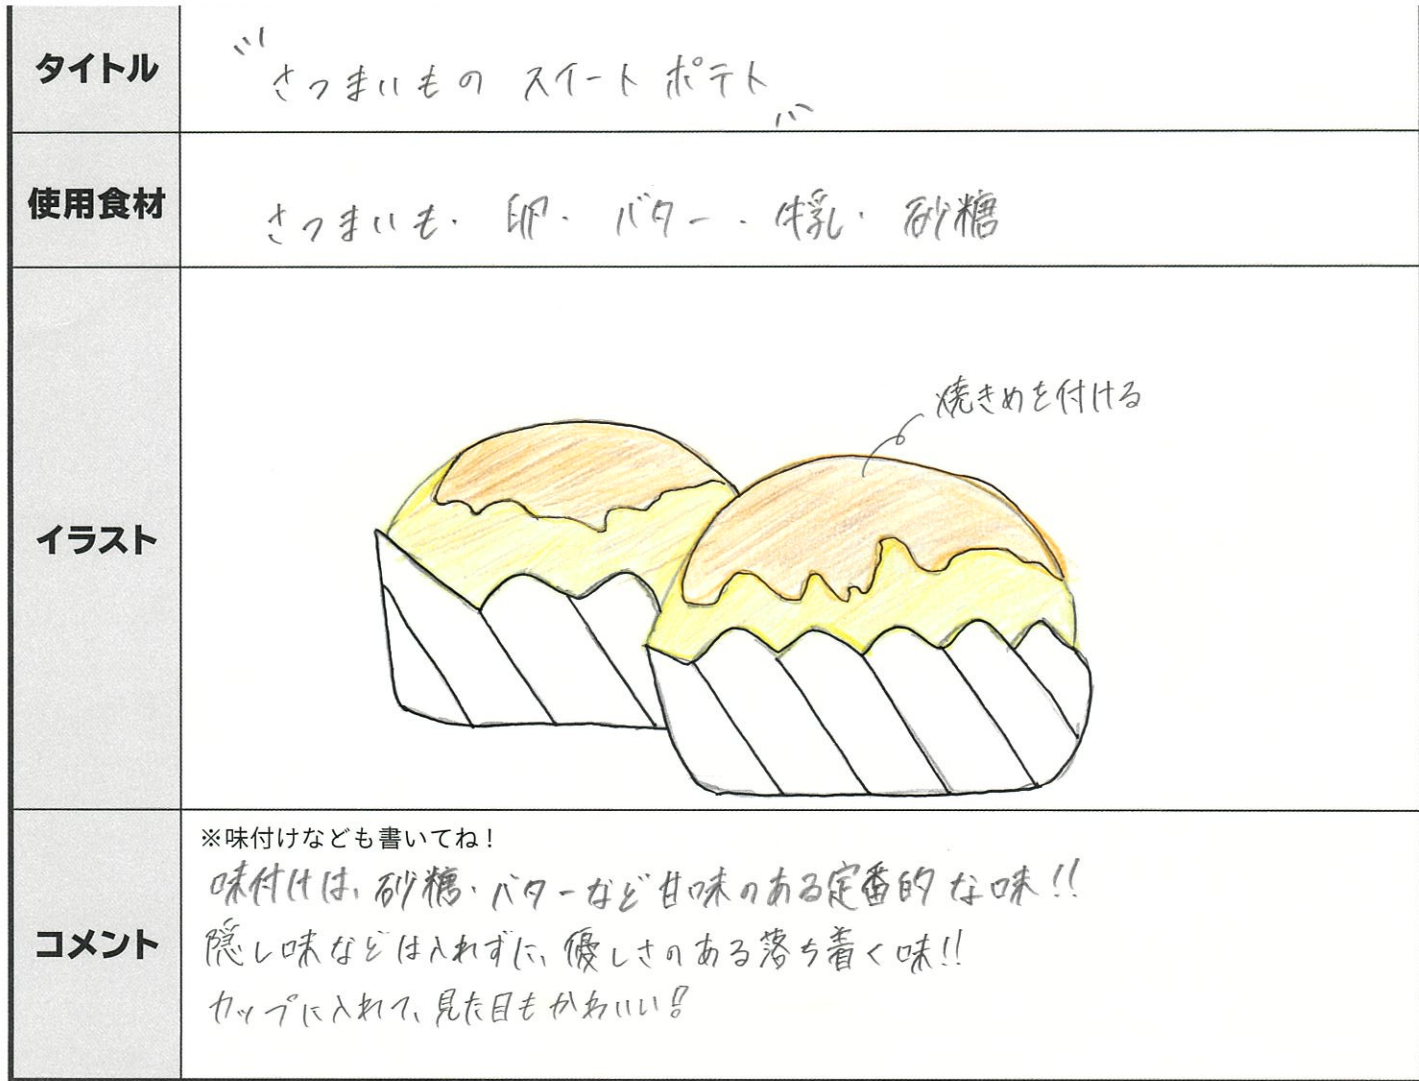 タイトル
さつまいもの スイートポテト
使用食材
さつまいも・卵・バター・牛乳・砂糖
イラスト
焼きめを付ける
コメント
※味付けなども書いてね！
味付けは、砂糖・バターなど甘味のある定番的な味!!
隠し味などは入れずに、優しさのある落ち着く味!!
カップに入れて、見た目もかわいい!